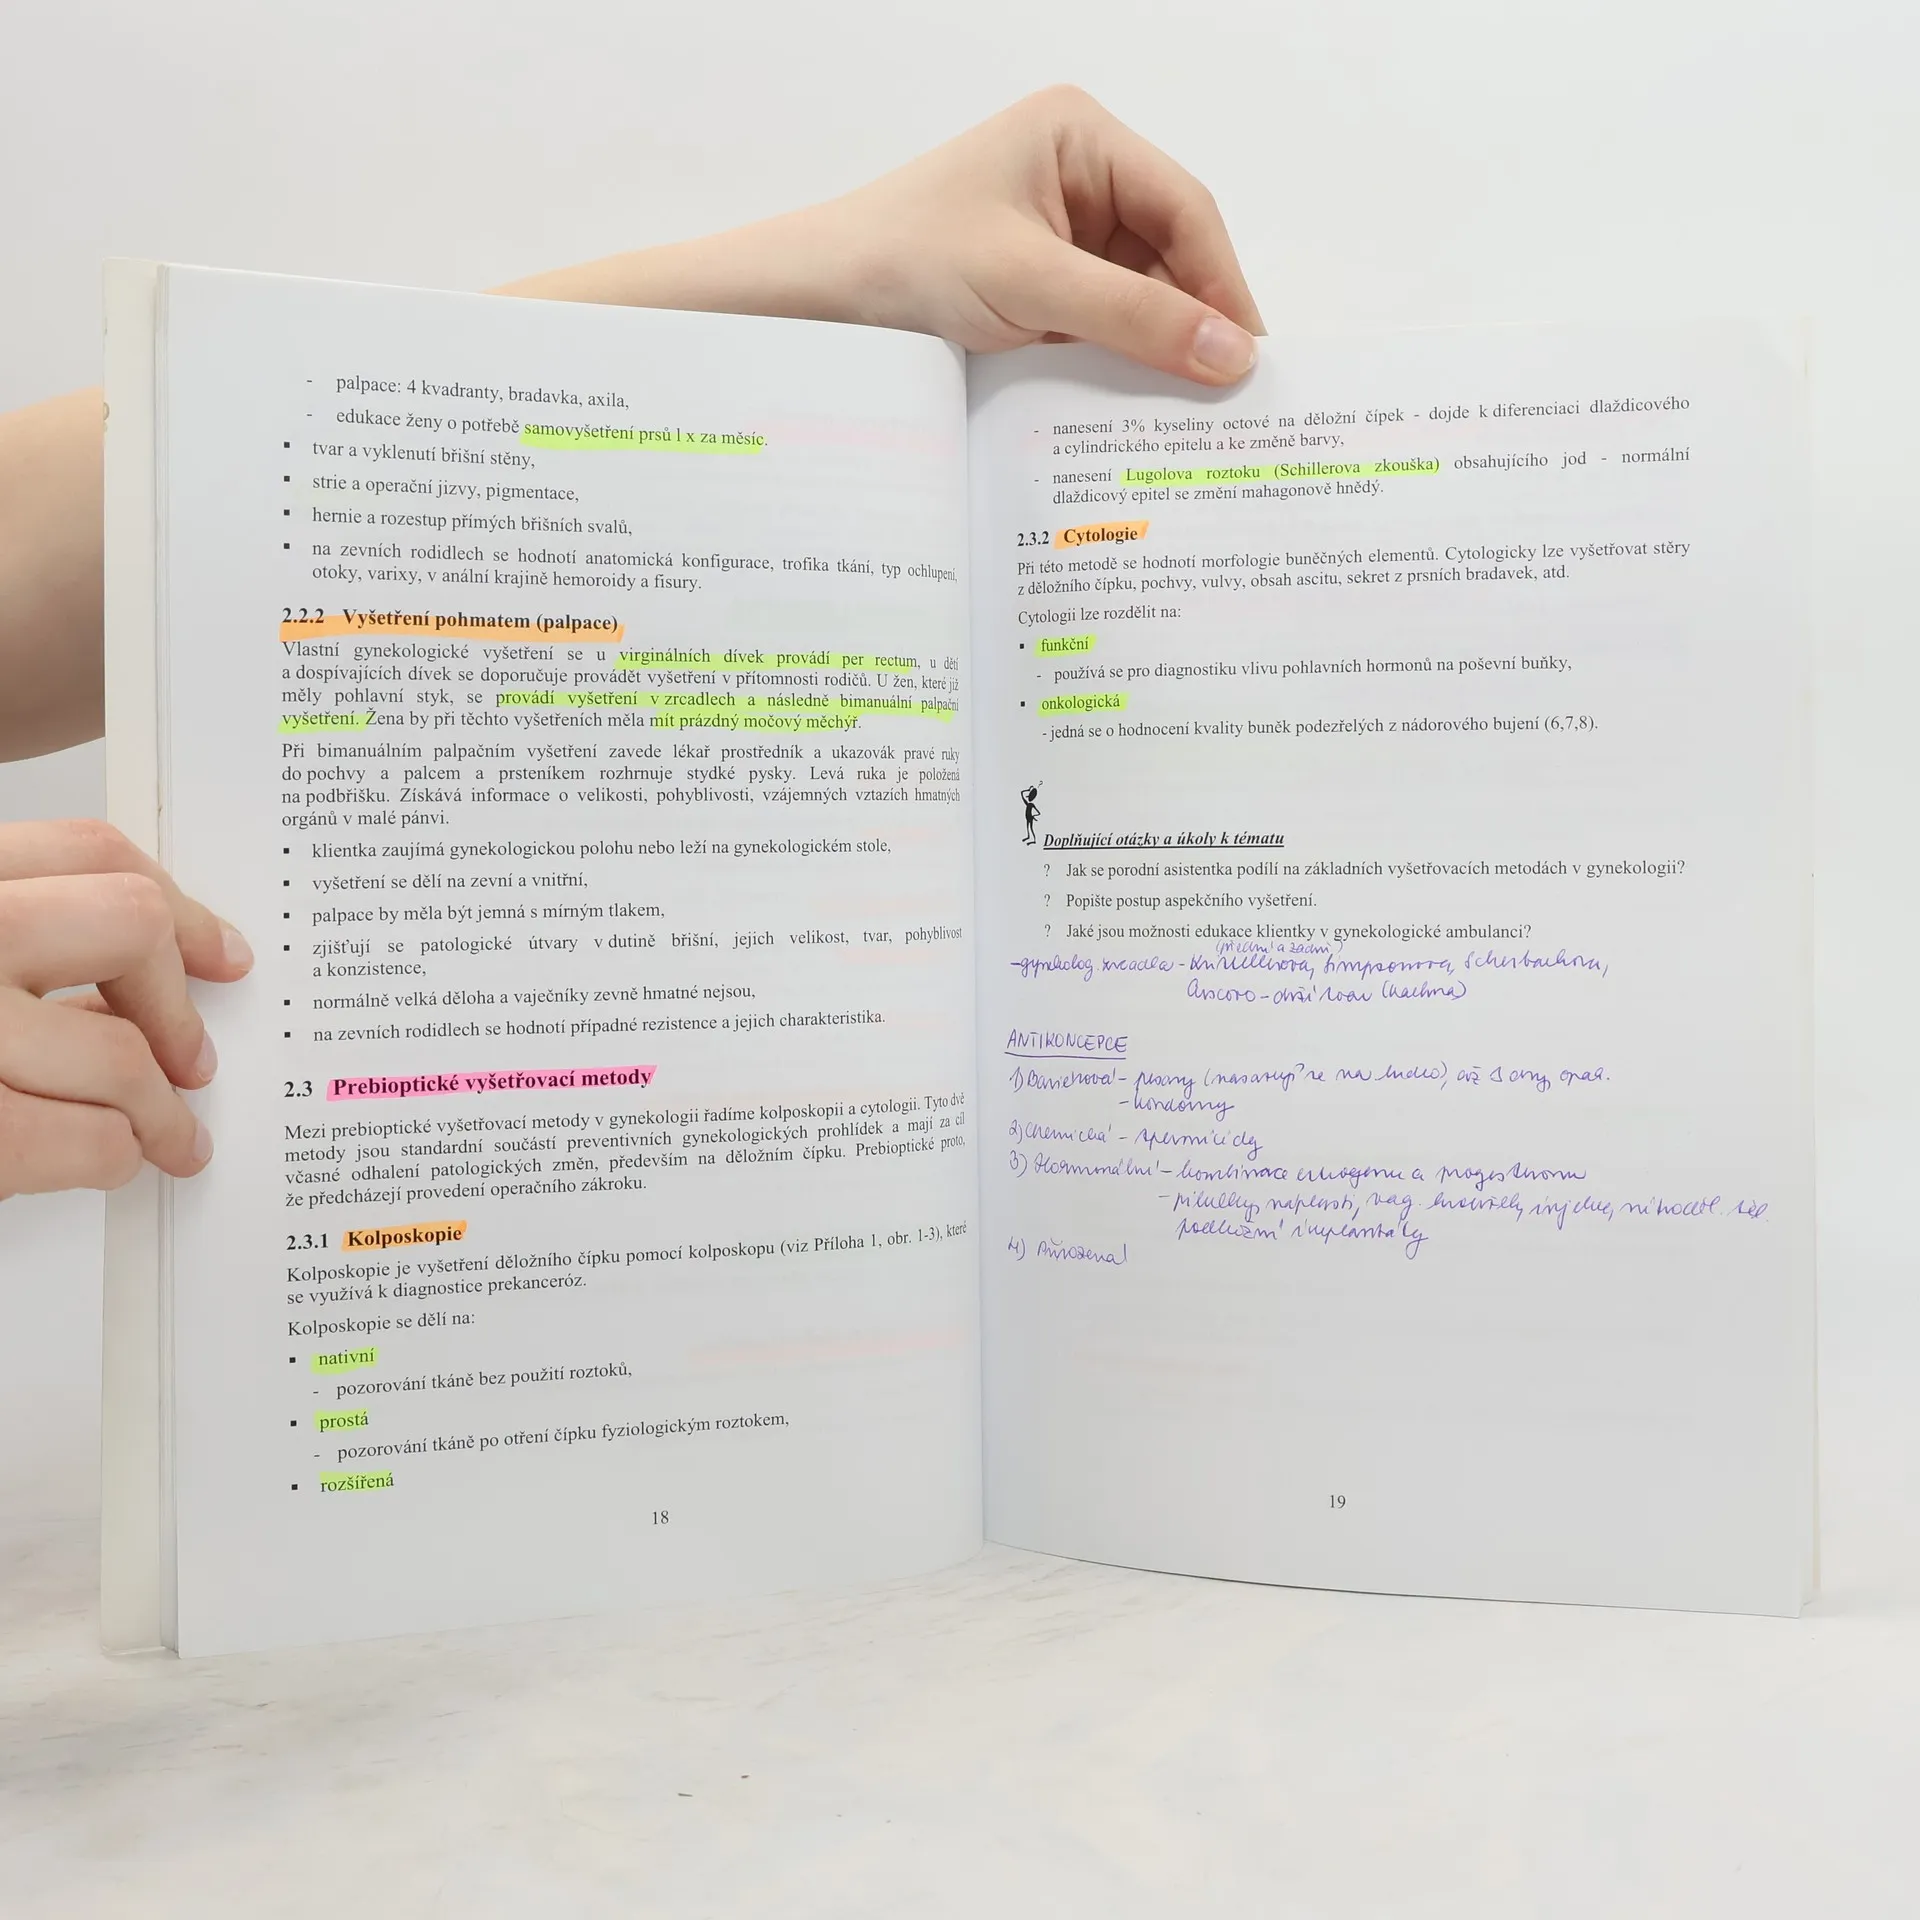 - palpace: 4 kvadranty, bradavka, axila,
- edukace ženy o potřebě samovyšetření prsů 1 x za měsíc.
▪ tvar a vyklenutí břišní stěny,
▪ strie a operační jizvy, pigmentace,
▪ hernie a rozestup přímých břišních svalů,
▪ na zevních rodidlech se hodnotí anatomická konfigurace, trofika tkání, typ ochlupení,
otoky, varixy, v anální krajině hemoroidy a fisury.
2.2.2 Vyšetření pohmatem (palpace)
Vlastní gynekologické vyšetření se u virginálních dívek provádí per rectum, u dětí
a dospívajících dívek se doporučuje provádět vyšetření v přítomnosti rodičů. U žen, které již
měly pohlavní styk, se provádí vyšetření v zrcadlech a následně bimanuální palpační
vyšetření. Žena by při těchto vyšetřeních měla mít prázdný močový měchýř.
Při bimanuálním palpačním vyšetření zavede lékař prostředník a ukazovák pravé ruky
do pochvy a palcem a prsteníkem rozhrnuje stydké pysky. Levá ruka je položená
na podbřišku. Získává informace o velikosti, pohyblivosti, vzájemných vztazích hmatných
orgánů v malé pánvi.
▪ klientka zaujímá gynekologickou polohu nebo leží na gynekologickém stole,
▪ vyšetření se dělí na zevní a vnitřní,
▪ palpace by měla být jemná s mírným tlakem,
▪ zjišťují se patologické útvary v dutině břišní, jejich velikost, tvar, pohyblivost
a konzistence,
▪ normálně velká děloha a vaječníky zevně hmatné nejsou,
▪ na zevních rodidlech se hodnotí případné rezistence a jejich charakteristika.
2.3 Prebioptické vyšetřovací metody
Mezi prebioptické vyšetřovací metody v gynekologii řadíme kolposkopii a cytologii. Tyto dvě
metody jsou standardní součástí preventivních gynekologických prohlídek a mají za cíl
včasné odhalení patologických změn, především na děložním čípku. Prebioptické proto,
že předcházejí provedení operačního zákroku.
2.3.1 Kolposkopie
Kolposkopie je vyšetření děložního čípku pomocí kolposkopu (viz Příloha 1, obr. 1-3), které
se využívá k diagnostice prekanceróz.
Kolposkopie se dělí na:
▪ nativní
- pozorování tkáně bez použití roztoků,
▪ prostá
- pozorování tkáně po otření čípku fyziologickým roztokem,
▪ rozšířená
18
- nanesení 3% kyseliny octové na děložní čípek - dojde k diferenciaci dlaždicového
a cylindrického epitelu a ke změně barvy,
- nanesení Lugolova roztoku (Schillerova zkouška) obsahujícího jod - normální
dlaždicový epitel se změní mahagonově hnědý.
2.3.2 Cytologie
Při této metodě se hodnotí morfologie buněčných elementů. Cytologicky lze vyšetřovat stěry
z děložního čípku, pochvy, vulvy, obsah ascitu, sekret z prsních bradavek, atd.
Cytologii lze rozdělit na:
▪ funkční
- používá se pro diagnostiku vlivu pohlavních hormonů na poševní buňky,
▪ onkologická
- jedná se o hodnocení kvality buněk podezřelých z nádorového bujení (6,7,8).
Doplňující otázky a úkoly k tématu
? Jak se porodní asistentka podílí na základních vyšetřovacích metodách v gynekologii?
? Popište postup aspekčního vyšetření.
? Jaké jsou možnosti edukace klientky v gynekologické ambulanci?
(přední a zadní)
- gynekolog. zrcadla - Simpsonova, Scherbachova,
(kachna)
ANTIKONCEPCE
1) Bariérová - pesary
- kondomy
2) Chemická - spermicidy
3) Hormonální - kombinace estrogenu a progesteronu
- pilulky, náplasti, vag. kroužky, injekce, nitroděl. těl.
podkožní implantáty
4) Přirozená